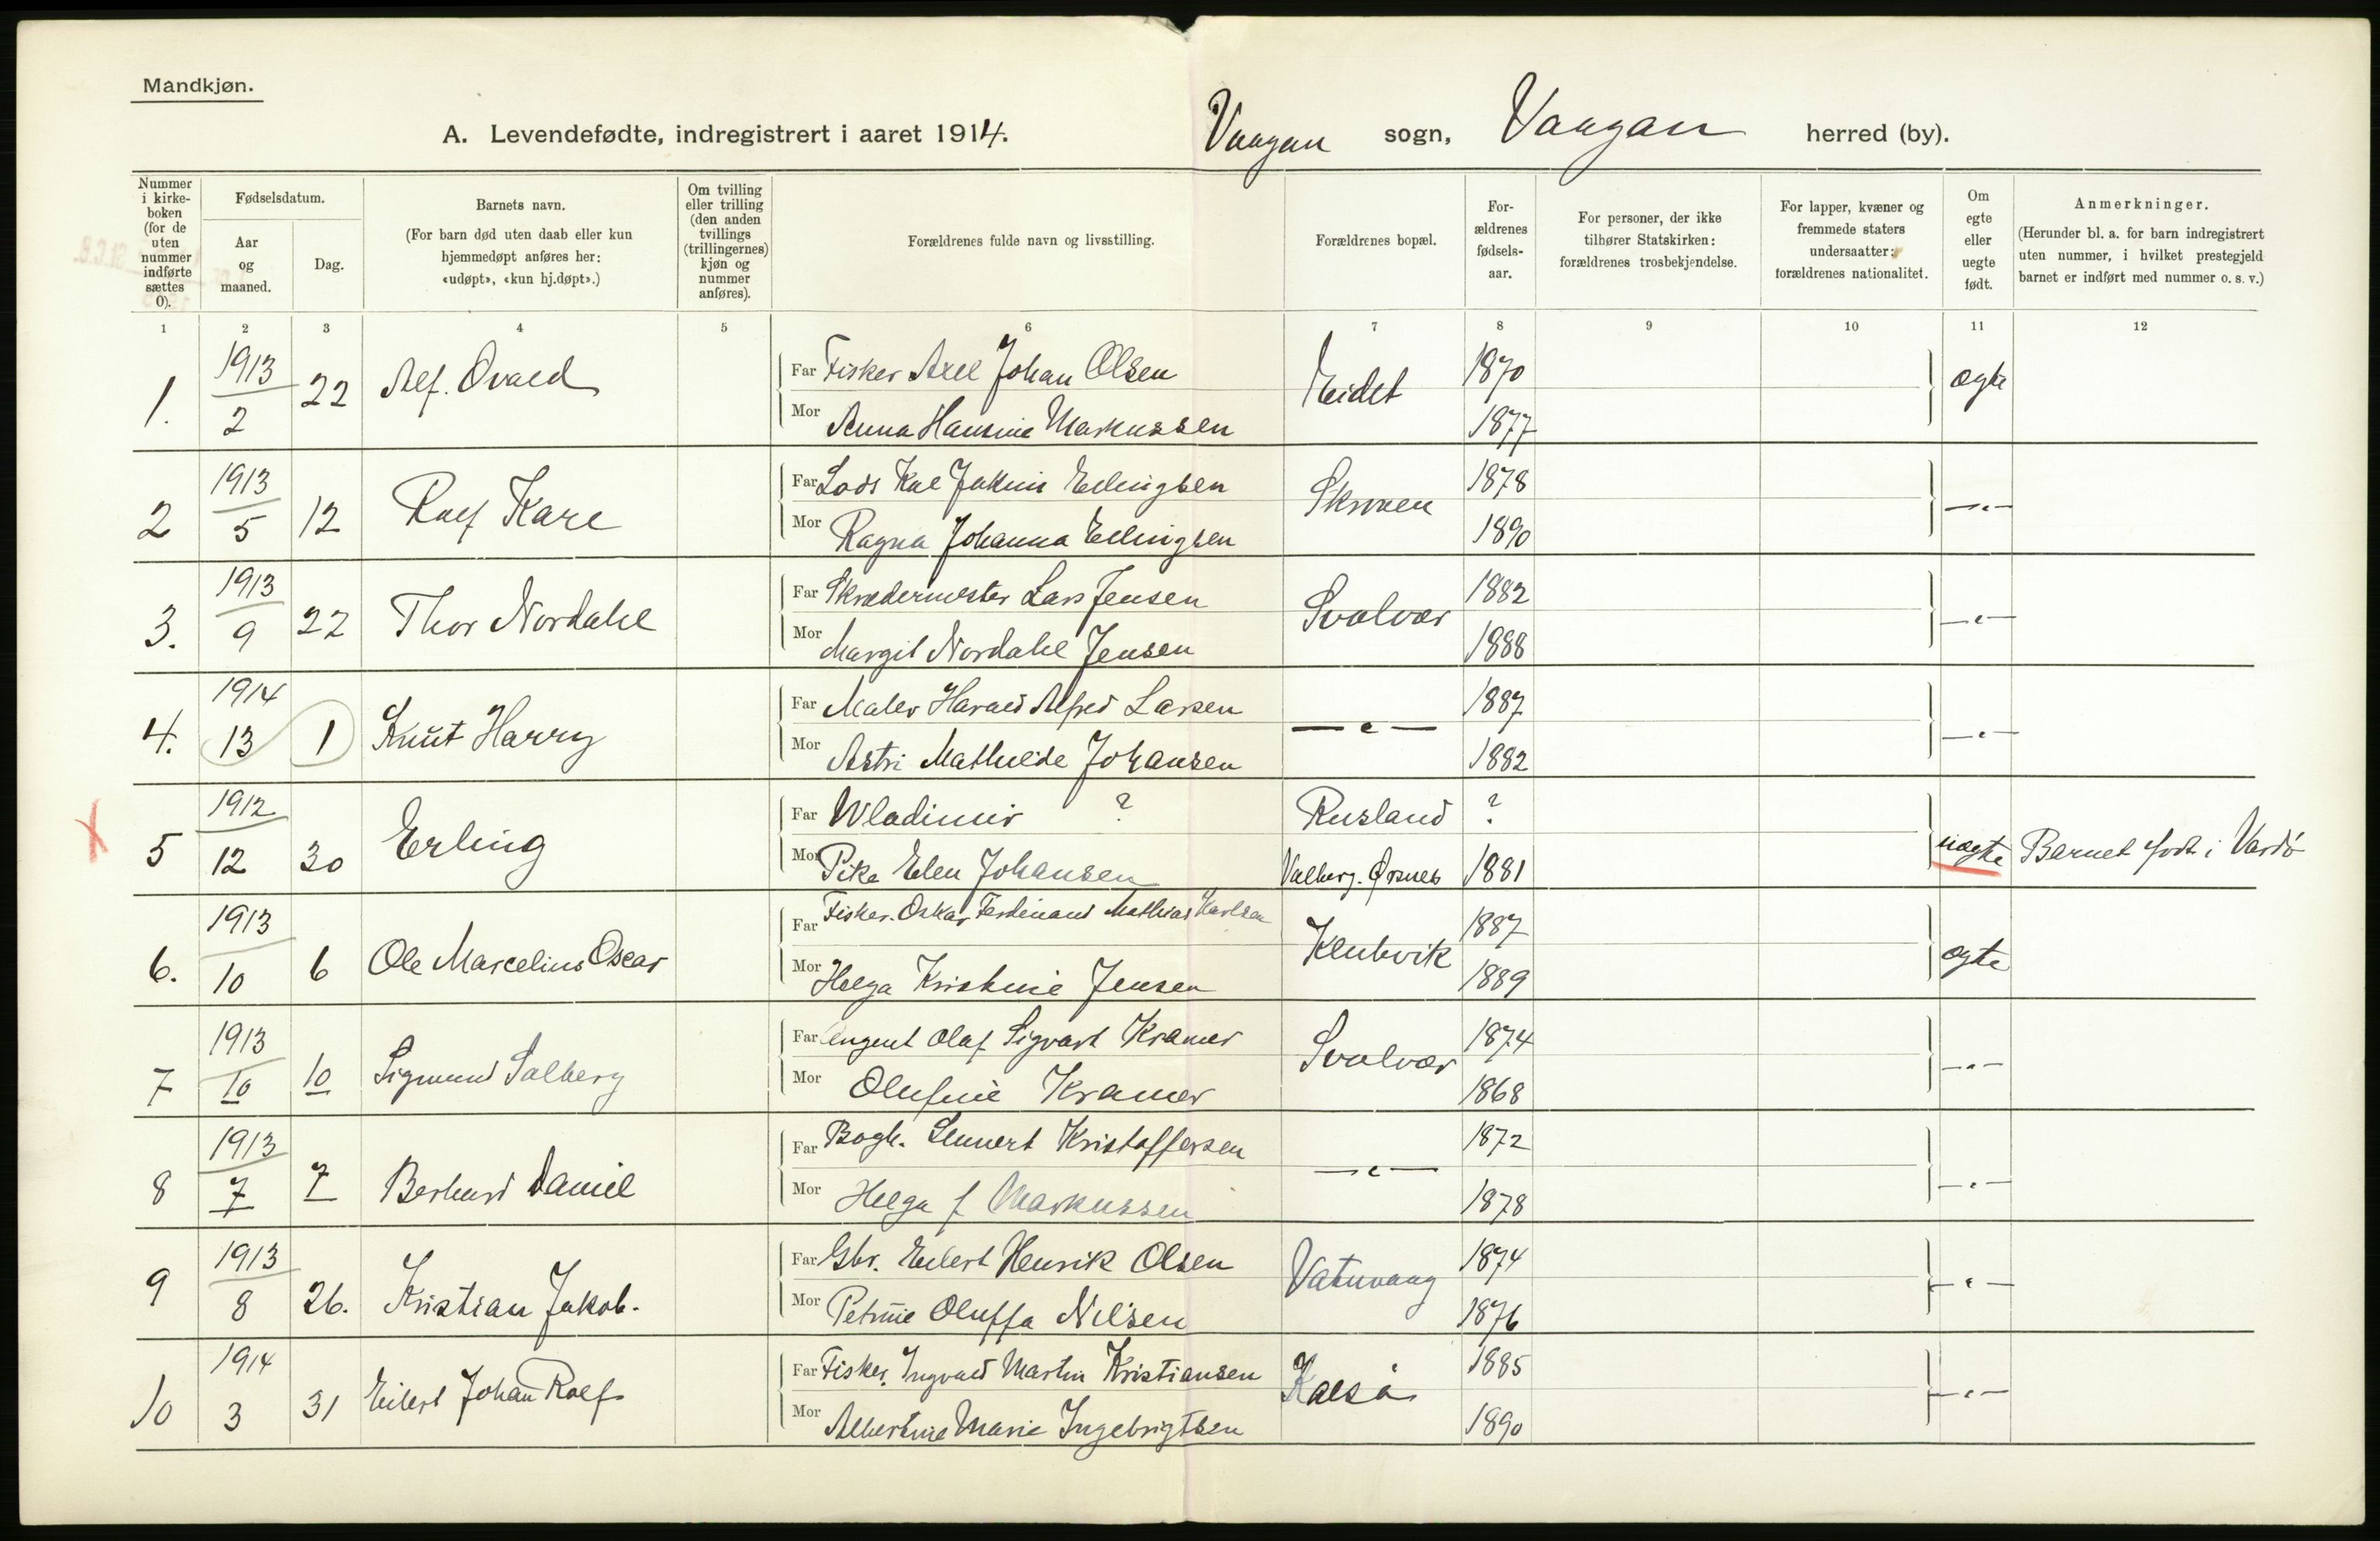 Mandkjøn.
A. Levendefødte, indregistrert i aaret 1914. Vaagan sogn, Vaagan herred (by).
Nummer i kirkeboken (for de uten nummer indførte sættes 0).
Fødselsdatum.
Aar og maaned.
Dag.
Barnets navn.
(For barn død uten daab eller kun hjemmedøpt anføres her: «udøpt», «kun hj.døpt».)
Om tvilling eller trilling (den anden tvillings (trillingernes) kjøn og nummer anføres).
Forældrenes fulde navn og livsstilling.
Forældrenes bopæl.
Forældrenes fødselsaar.
For personer, der ikke tilhører Statskirken: forældrenes trosbekjendelse.
For lapper, kvæner og fremmede staters undersaatter: forældrenes nationalitet.
Om egte eller uegte født.
Anmerkninger.
(Herunder bl. a. for barn indregistrert uten nummer, i hvilket prestegjeld barnet er indført med nummer o. s. v.)
1 2 3 4 5 6 7 8 9 10 11 12
1. 1913 2 22 Alf. Ovald Far Fisker Axel Johan Olsen Eidet 1870 ægte
Mor Anna Hansine Markussen 1877
2 1913 5 12 Rolf Kare Far Lods Kal Jakim Ellingsen Skroven 1878 -"-
Mor Ragna Johanna Ellingsen 1890
3. 1913 9 22 Thor Nordahl Far Skrædermester Lars Jensen Svolvær 1882 -"-
Mor Margit Nordahl Jensen 1888
4. 1914 13 1 Knut Harry Far Maler Harald Alfred Larsen -"- 1887 -"-
Mor Astri Mathilde Johansen 1882
5 1912 12 30 Erling Far Wladimir ? Rusland ? uægte Barnet født i Vardö
Mor Pike Elen Johansen Valberg. Ørsnes 1881
6. 1913 10 6 Ole Marcelius Oscar Far Fisker. Oskar Ferdinand Mathias Karlsen Klubvik 1887 ægte
Mor Helga Kristine Jensen 1889
7 1913 10 10 Sigmund Solberg Far Angent Olaf Sigvart Kramer Svolvær 1874 -"-
Mor Olufine Kramer 1868
8 1913 7 7 Berhard Daniel Far Bogh. Lennert Kristoffersen -"- 1872 -"-
Mor Helga f Markussen 1878
9 1913 8 26. Kristian Jakob. Far Gbr. Eilert Henrik Olsen Vatnvaag 1874 -"-
Mor Petrine Oluffa Nilsen 1876
10 1914 3 31 Eilert Johan Rolf Far Fisker. Ingvald Martin Kristiansen Kalså 1885 -"-
Mor Albertine Marie Ingebrigtsen 1890